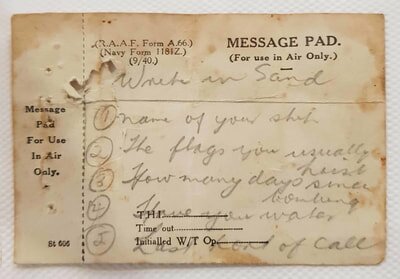 (R.A.A.F. Form A.66.)
(Navy Form 1181Z.)
(9/40.)
MESSAGE PAD.
(For use in Air Only.)
Message
Pad
For Use
In Air
Only.
Write in Sand
1 name of your ship
2 The flags you usually
hoist
3 How many days since
bombing
4 Have you water
T.H.I.
Time out
Initialled W/T Op.
5 Last Port of Call